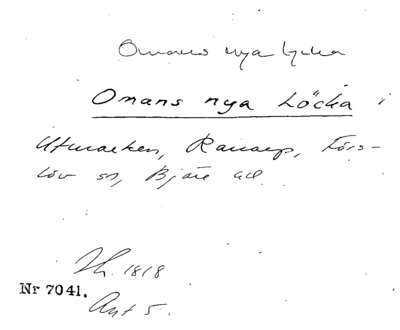 Omans nya lycka
Omans nya Löcka i
Utmarken, Ranarp, Förs-
löv sn, Bjäre hd.
Sk. 1818
Nr 7041.
Ant 5.